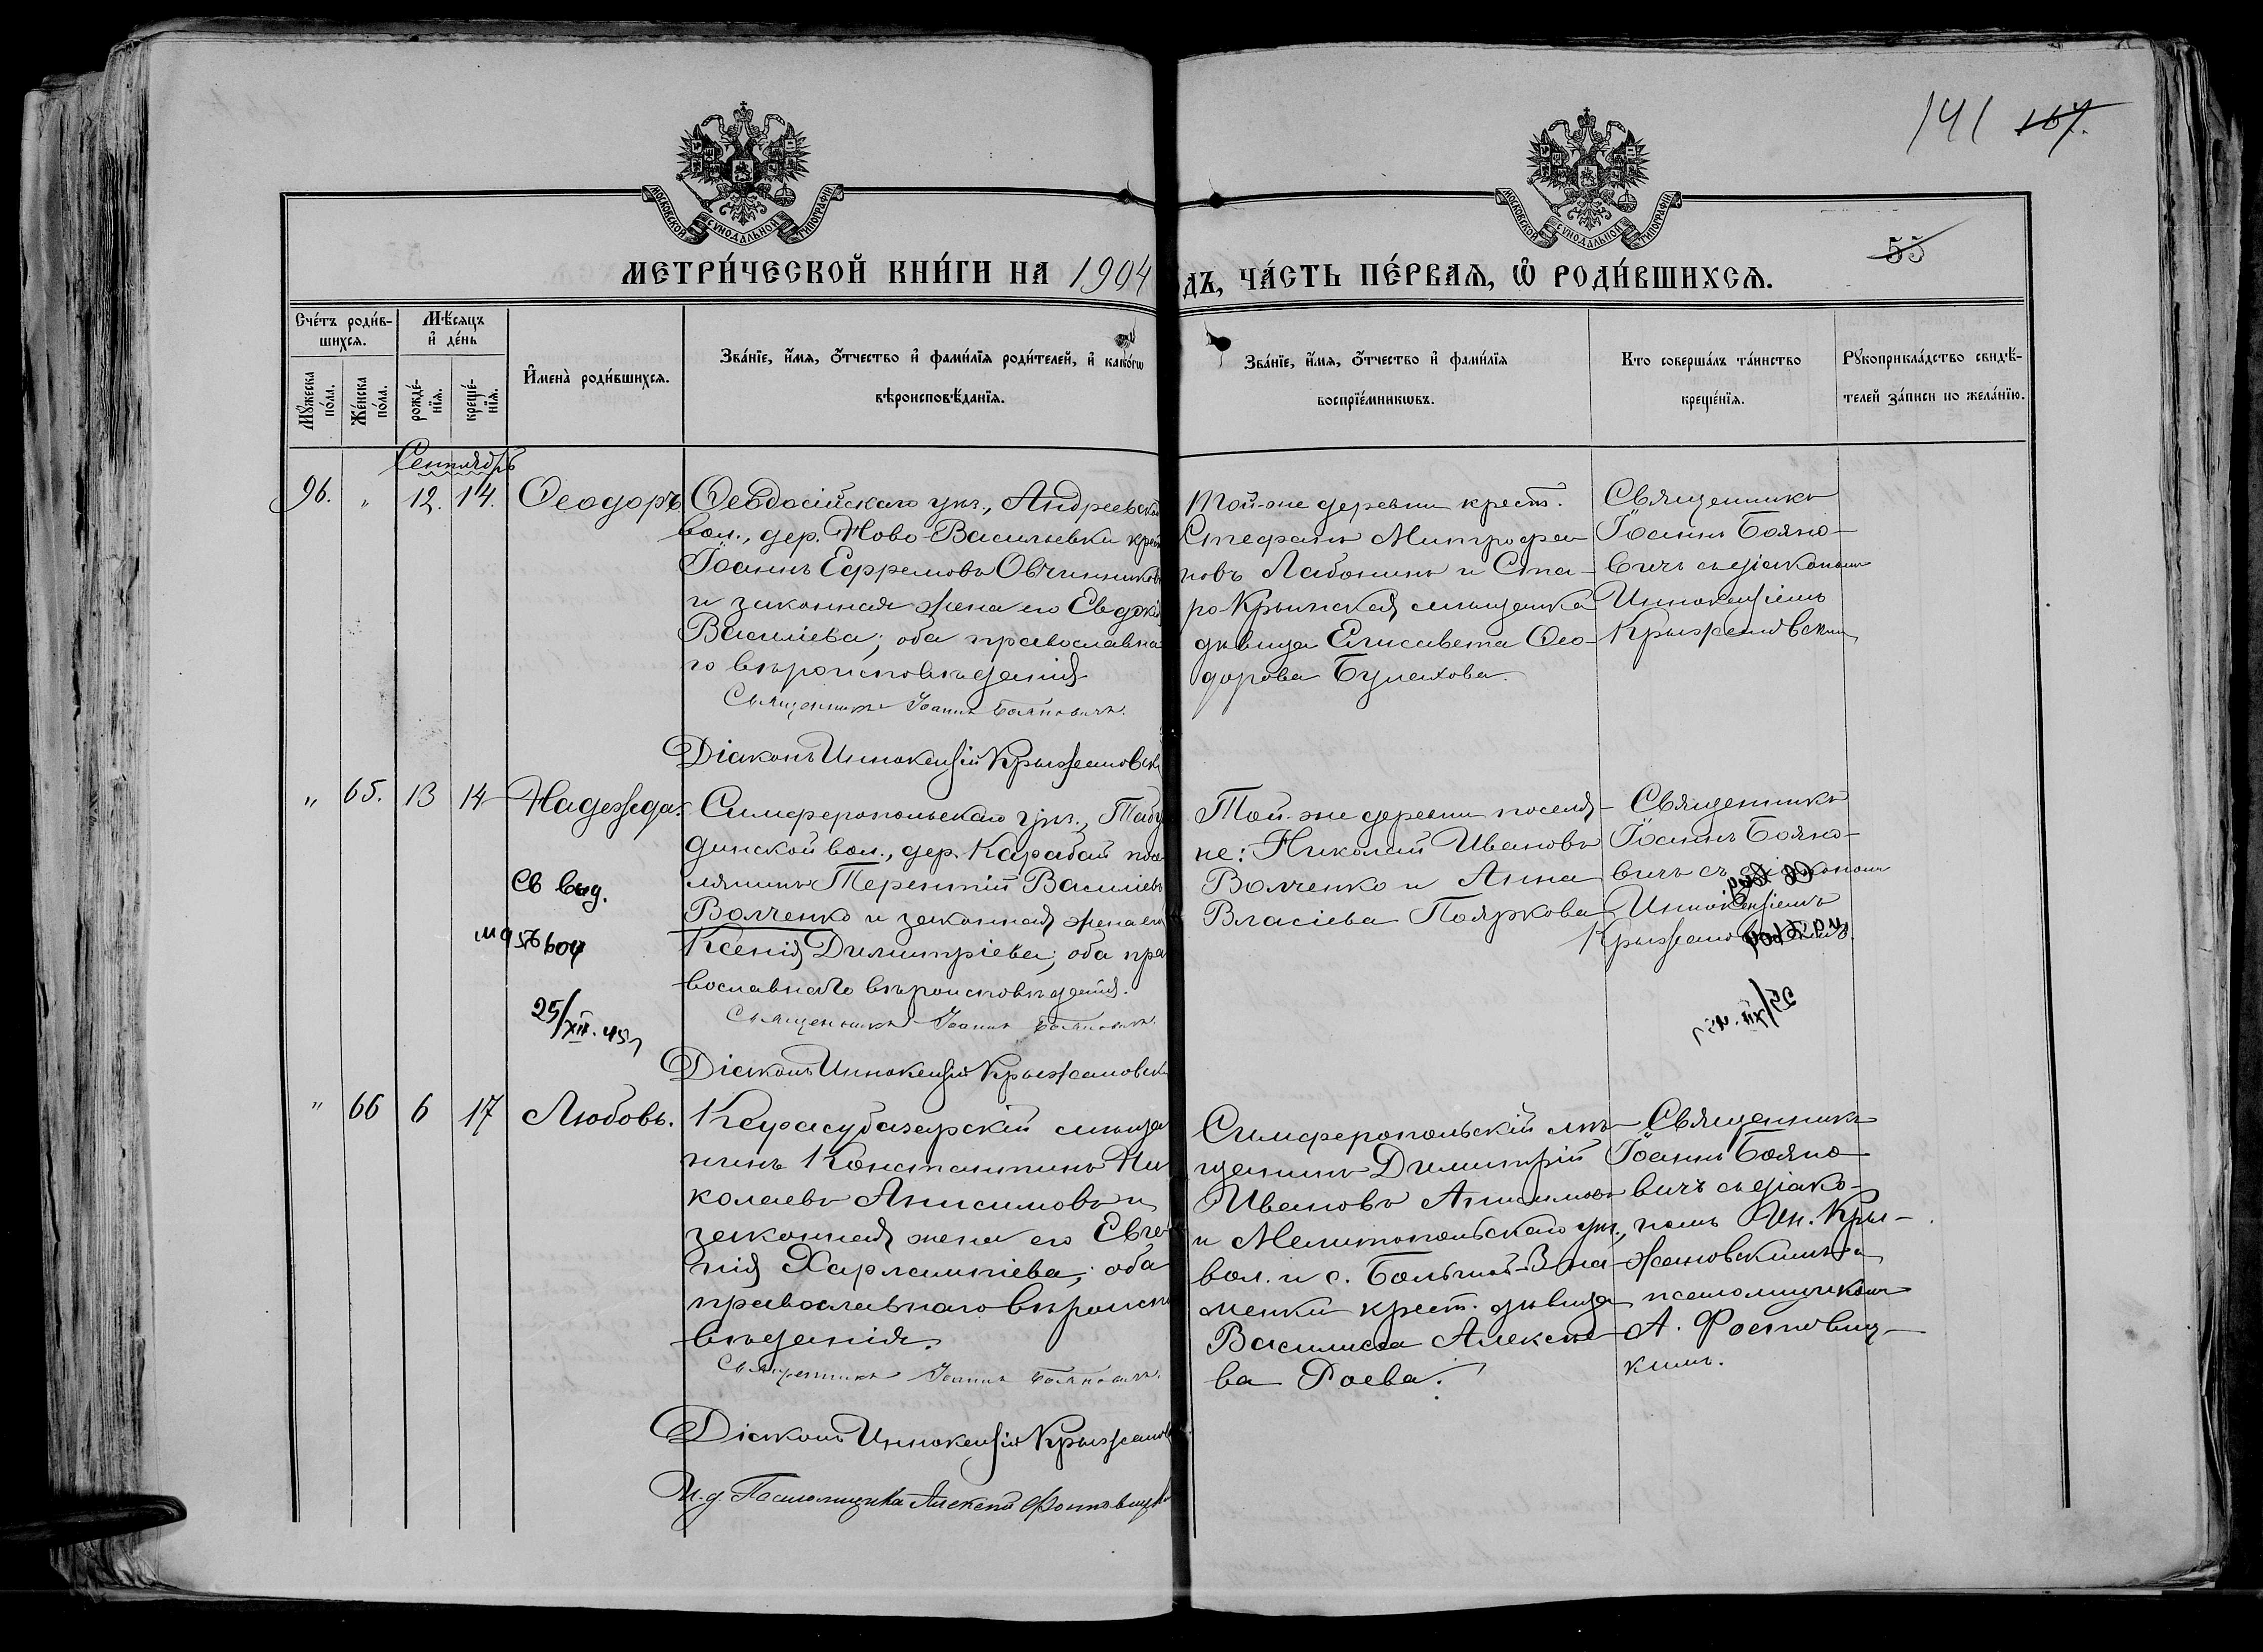 141 167.
МОСКОВСКОЙ СѴНОДАЛЬНОЙ ТИПОГРАФІИ
МОСКОВСКОЙ СѴНОДАЛЬНОЙ ТИПОГРАФІИ
55
МЕТРИ́ЧЕСКОЙ КНИ́ГИ НА 1904
ДЪ, ЧА́СТЬ ПЕ́РВАѦ, Ѽ РОДИ́ВШИХСѦ.
Сче́тъ роди́в-
шихсѧ.
Мѣ́сѧцъ
и҆ де́нь
Мꙋ́жеска
по́ла.
Же́нска
по́ла.
рожде́-
нїѧ.
креще́-
нїѧ.
И҆мена̀ роди́вшихсѧ.
Зва́нїе, и҆́мѧ, ѻ҆́тчество и҆ фами́лїѧ роди́телей, и҆ како́гѡ
вѣроисповѣ́данїѧ.
Зва́нїе, и҆́мѧ, ѻ҆́тчество и҆ фами́лїѧ
воспрїе́мникѡвъ.
Кто соверша́лъ та́инство
креще́нїѧ.
Рꙋкоприкла́дство свидѣ́-
телей за́писи по жела́нїю.
Сентябрь
96. " 12. 14. Ѳеодоръ
Ѳеодосійскаго уѣз., Андреевской
вол., дер. Ново-Васильевки крест.
Іоаннъ Ефремовъ Овчинниковъ
и законная жена его Евдокія
Василіева; оба православна
го вѣроисповѣданія
Священникъ Іоаннъ Бояновичъ.
Діаконъ Иннокентій Крыжановскі
Той-же деревни крест.
Стефанъ Митрофа
новъ Лабонинъ и Ста-
ро-Крымская мѣщанка
дѣвица Елисавета Ѳео-
дорова Булахова.
Священникъ
Іоаннъ Бояно-
вичъ съ діакономъ
Иннокентіемъ
Крыжановским
" 65. 13 14 Надежда.
Св выд.
МЯ 576604
25/XII. 45 г
Симферопольскаго уѣз., Табу
динской вол., дер. Карабай посе
лянинъ Терентій Василіевъ
Волченко и законная жена его
Ксенія Димитріева; оба пра
вославнаго вѣроисповѣданія.
Священникъ Іоаннъ Бояновичъ.
Діаконъ Иннокентій Крыжановскі
Той-же деревни поселя-
не: Николай Ивановъ
Волченко и Анна
Власіева Пояркова
Священникъ
Іоаннъ Бояно-
вичъ съ діакономъ
Иннокентіемъ
Крыжановскимъ.
" 66 6 17 Любовь.
Карасубазарскій мѣща
нинъ Константинъ Ни
колаевъ Анисимовъ и
законная жена его Евге
нія Харлампіева; оба
православнаго вѣроиспо
вѣданія.
Священникъ Іоаннъ Бояновичъ.
Діаконъ Иннокентій Крыжанов
И. д. Псаломщика Алексѣй
Симферопольскій мѣ-
щанинъ Димитрій
Ивановъ Анисимовъ
и Мелитопольскаго уѣз.,
вол. и с. Большой-Зна-
менки крест. дѣвица
Василисса Алексѣе-
ва Роева.
Священникъ
Іоаннъ Бояно-
вичъ съ діако-
номъ Ин. Кры-
жановскимъ и
псаломщикомъ
А.
кимъ.